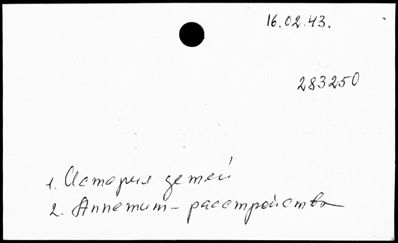 16.02.43.
283250
1. История детей
2. Аппетит - расстройства